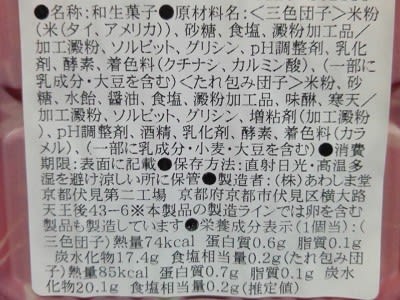 ●名称:和生菓子●原材料名:＜三色団子＞米粉
(米(タイ、アメリカ))、砂糖、食塩、澱粉加工品／
加工澱粉、ソルビット、グリシン、pH調整剤、乳化
剤、酵素、着色料(クチナシ、カルミン酸)、(一部に
乳成分・大豆を含む)＜たれ包み団子＞米粉、砂
糖、水飴、醤油、食塩、澱粉加工品、味醂、寒天／
加工澱粉、ソルビット、グリシン、増粘剤(加工澱粉)
、pH調整剤、酒精、乳化剤、酵素、着色料(カラ
メル)、(一部に乳成分・小麦・大豆を含む)●消費
期限:表面に記載●保存方法:直射日光・高温多
湿を避け涼しい所に保管●製造者:(株)あわしま堂
京都伏見第二工場 京都府京都市伏見区横大路
天王後43-6※本製品の製造ラインでは卵を含む
製品も製造しています●栄養成分表示(1個当):
(三色団子)熱量74kcal 蛋白質0.6g 脂質0.1g
炭水化物17.4g 食塩相当量0.2g(たれ包み団子)
熱量85kcal 蛋白質0.7g 脂質0.1g 炭水
化物20.1g 食塩相当量0.2g(推定値)